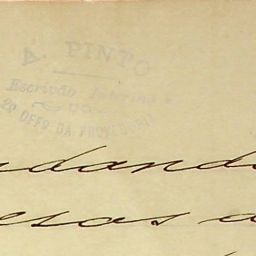 A. PINTO
Escrivão Interino
DO
2º OFFº DA PROVEDORIA
ndando
esas a